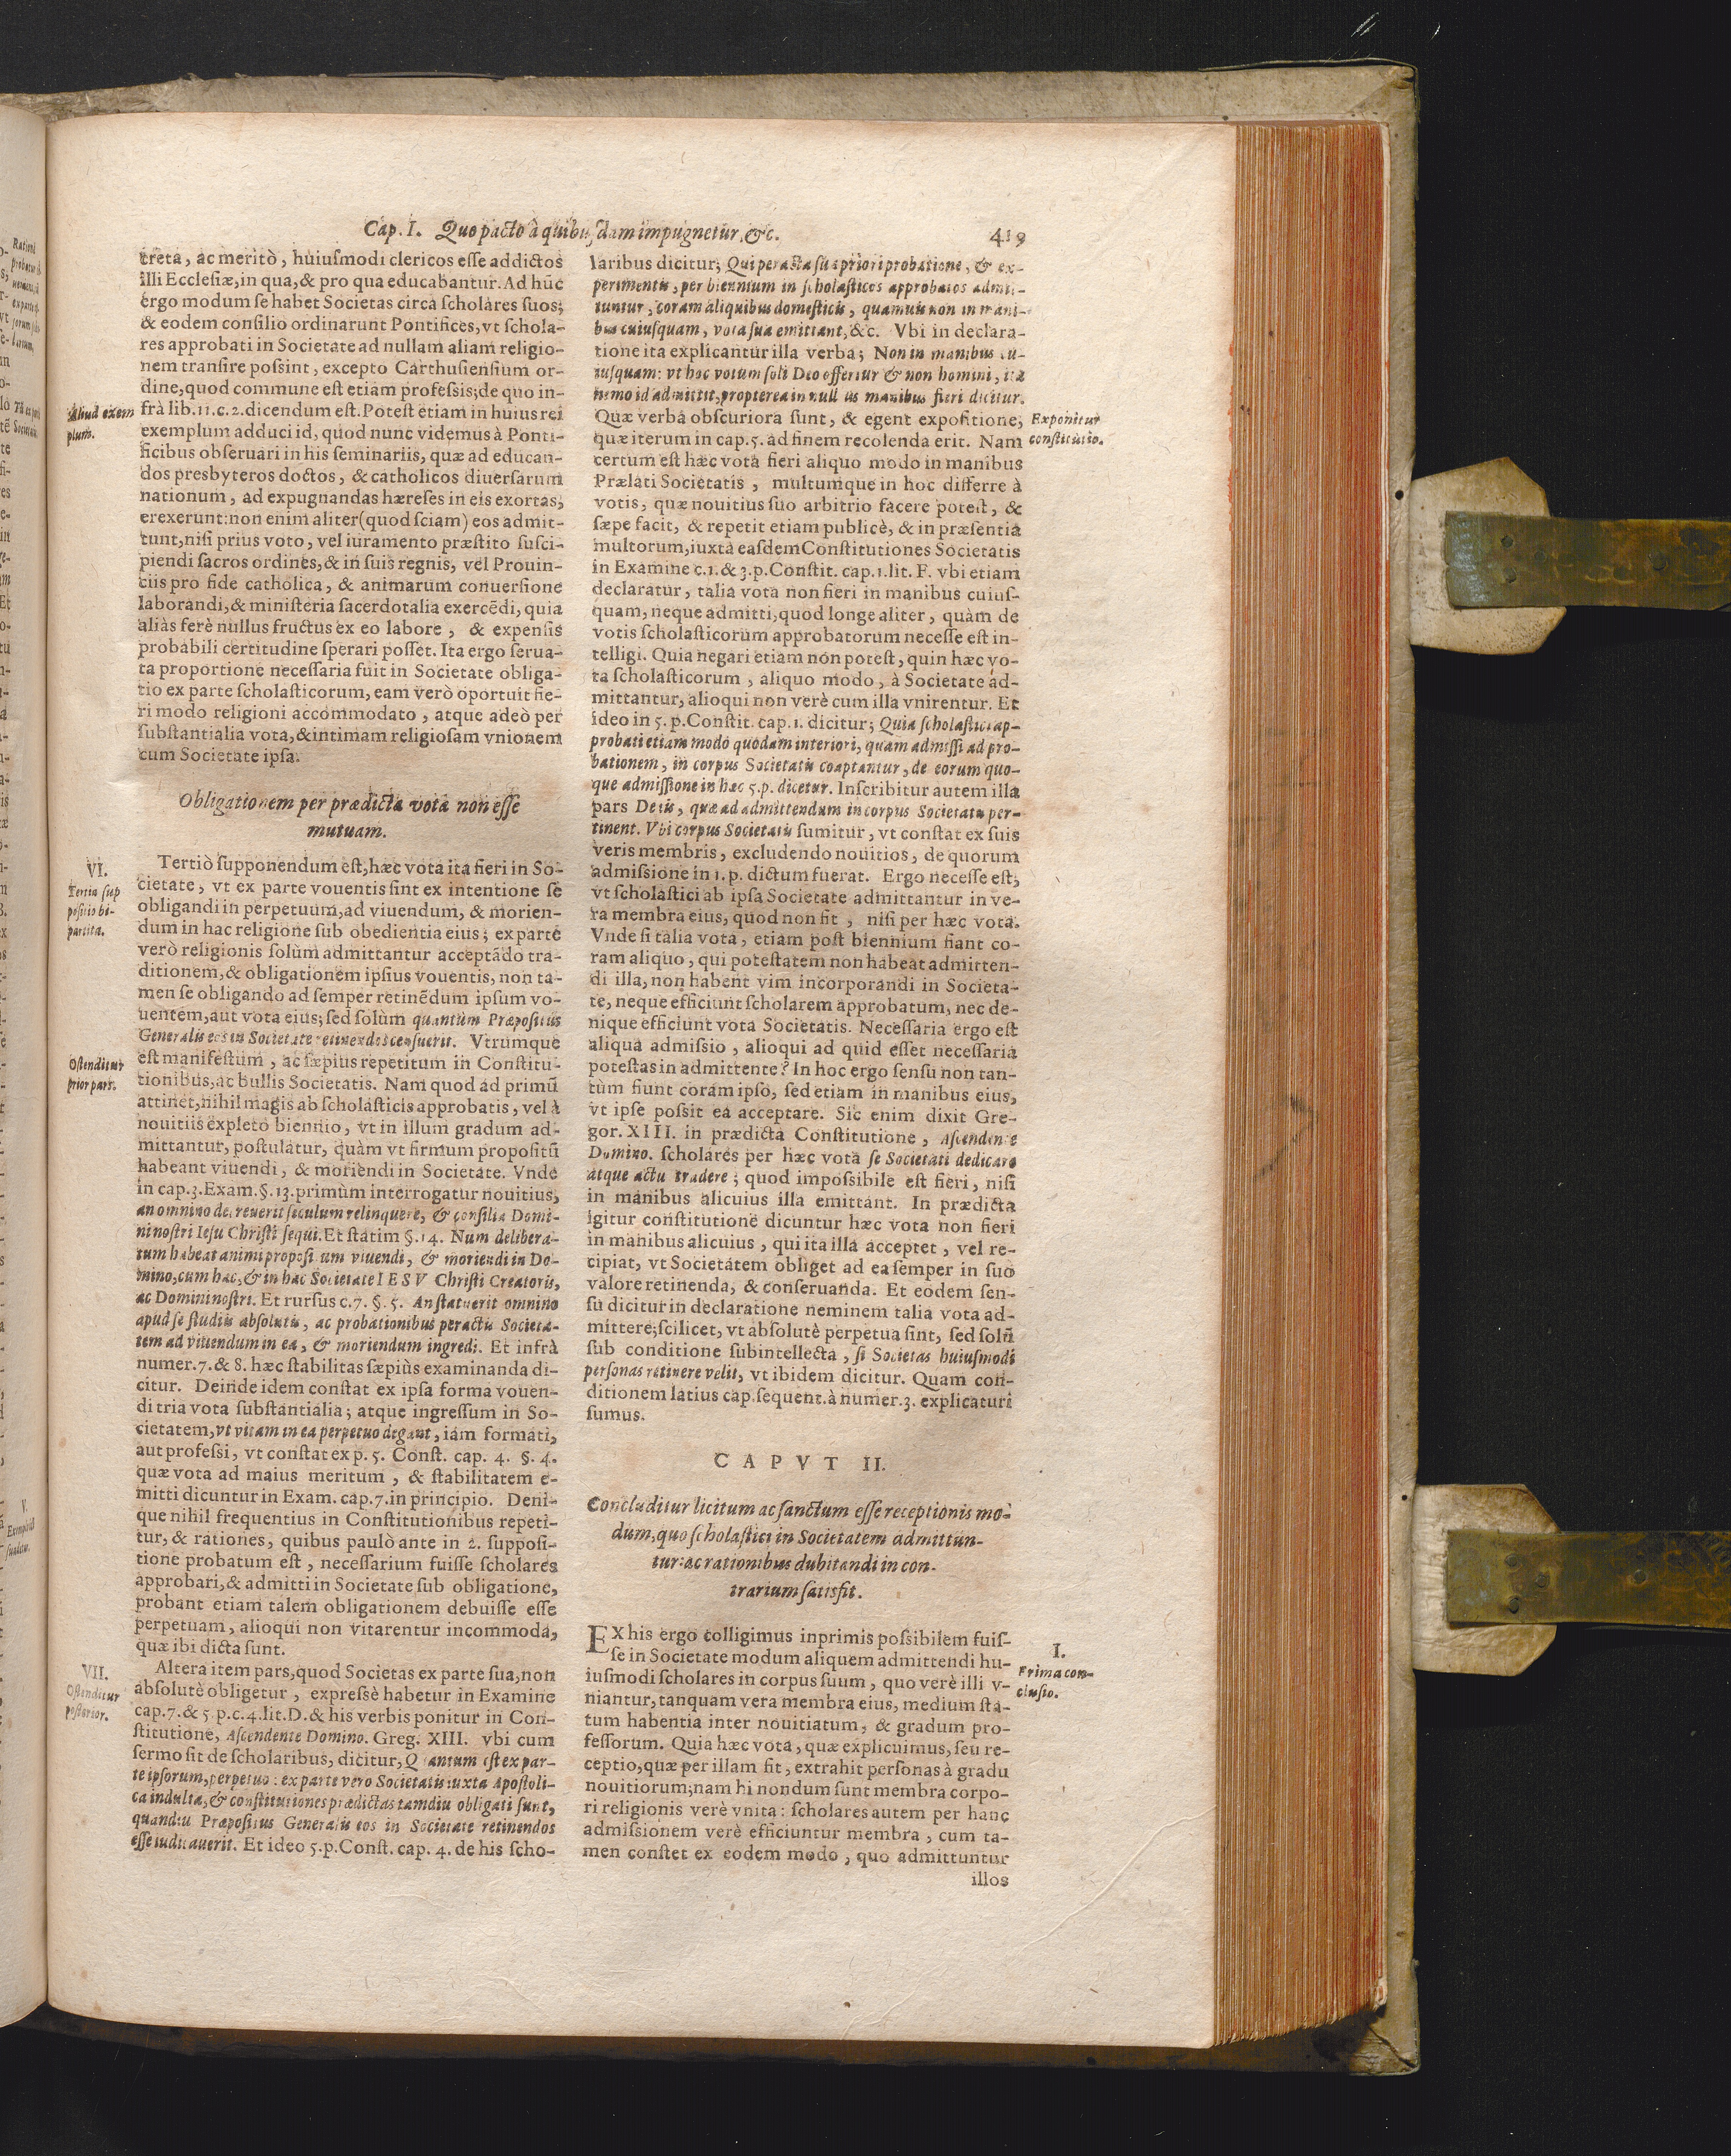 Cap. I. Quo pacto à quibusdam impugnetur, &c. 419
creta, ac meritò, huiusmodi clericos esse addictos
illi Ecclesiæ, in qua, & pro qua educabantur. Ad hũc
ergo modum se habet Societas circa scholares suos;
& eodem consilio ordinarunt Pontifices, vt schola-
res approbati in Societate ad nullam aliam religio-
nem transire possint, excepto Carthusiensium or-
dine, quod commune est etiam professis; de quo in-
frà lib. 11. c. 2. dicendum est. Potest etiam in huius rei
exemplum adduci id, quod nunc videmus à Ponti-
ficibus obseruari in his seminariis, quæ ad educan-
dos presbyteros doctos, & catholicos diuersarum
nationum, ad expugnandas hæreses in eis exortas,
erexerunt: non enim aliter (quod sciam) eos admit-
tunt, nisi prius voto, vel iuramento præstito susci-
piendi sacros ordines, & in suis regnis, vel Prouin-
ciis pro fide catholica, & animarum conuersione
laborandi, & ministeria sacerdotalia exercẽdi, quia
aliàs ferè nullus fructus ex eo labore, & expensis
probabili certitudine sperari posset. Ita ergo serua-
ta proportione necessaria fuit in Societate obliga-
tio ex parte scholasticorum, eam verò oportuit fie-
ri modo religioni accommodato, atque adeò per
substantialia vota, & intimam religiosam vnionem
cum Societate ipsa.
Aliud exem
plum.
Obligationem per prædicta vota non esse
mutuam.
VI.
Tertia sup
positio bi-
partita.
Tertiò supponendum est, hæc vota ita fieri in So-
cietate, vt ex parte vouentis sint ex intentione se
obligandi in perpetuum, ad viuendum, & morien-
dum in hac religione sub obedientia eius; ex parte
verò religionis solùm admittantur acceptãdo tra-
ditionem, & obligationem ipsius vouentis, non ta-
men se obligando ad semper retinẽdum ipsum vo-
uentem, aut vota eius; sed solùm quantùm Præpositus
Generalis eos in Societate retinendos censuerit. Vtrumque
est manifestum, ac sæpius repetitum in Constitu-
tionibus, ac bullis Societatis. Nam quod ad primũ
attinet, nihil magis ab scholasticis approbatis, vel à
nouitiis expleto biennio, vt in illum gradum ad-
mittantur, postulatur, quàm vt firmum propositũ
habeant viuendi, & moriendi in Societate. Vnde
in cap. 3. Exam. §. 13. primùm interrogatur nouitius,
an omnino decreuerit seculum relinquere, & consilia Domi-
ni nostri Iesu Christi sequi. Et statim §. 14. Num delibera-
tum habeat animi propositum viuendi, & moriendi in Do-
mino, cum hac, & in hac Societate IESV Christi Creatoris,
ac Domini nostri. Et rursus c. 7. §. 5. An statuerit omnino
apud se studiis absolutis, ac probationibus peractis Societa-
tem ad viuendum in ea, & moriendum ingredi. Et infrà
numer. 7. & 8. hæc stabilitas sæpiùs examinanda di-
citur. Deinde idem constat ex ipsa forma vouen-
di tria vota substantialia; atque ingressum in So-
cietatem, vt vitam in ea perpetuo degant, iam formati,
aut professi, vt constat ex p. 5. Const. cap. 4. §. 4.
quæ vota ad maius meritum, & stabilitatem e-
mitti dicuntur in Exam. cap. 7. in principio. Deni-
que nihil frequentius in Constitutionibus repeti-
tur, & rationes, quibus paulò ante in 2. supposi-
tione probatum est, necessarium fuisse scholares
approbari, & admitti in Societate sub obligatione,
probant etiam talem obligationem debuisse esse
perpetuam, alioqui non vitarentur incommoda,
quæ ibi dicta sunt.
Ostenditur
prior pars.
VII.
Ostenditur
posterior.
Altera item pars, quod Societas ex parte sua, non
absolutè obligetur, expressè habetur in Examine
cap. 7. & 5. p. c. 4. lit. D. & his verbis ponitur in Con-
stitutione, Ascendente Domino. Greg. XIII. vbi cum
sermo sit de scholaribus, dicitur, Quantum est ex par-
te ipsorum, perpetuo: ex parte vero Societatis iuxta Apostoli-
ca indulta, & constitutiones prædictas tamdiu obligati sunt,
quandiu Præpositus Generalis eos in Societate retinendos
esse iudicauerit. Et ideo 5. p. Const. cap. 4. de his scho-
laribus dicitur; Qui peracta sua priori probatione, & ex-
perimentis, per biennium in scholasticos approbatos admit-
tuntur, coram aliquibus domesticis, quamuis non in mani-
bus cuiusquam, vota sua emittant, &c. Vbi in declara-
tione ita explicantur illa verba; Non in manibus cu-
iusquam: vt hoc votum soli Deo offertur & non homini, ita
nemo id admittit, propterea in nullius manibus fieri dicitur.
Quæ verba obscuriora sunt, & egent expositione;
quæ iterum in cap. 5. ad finem recolenda erit. Nam
certum est hæc vota fieri aliquo modo in manibus
Prælati Societatis, multumque in hoc differre à
votis, quæ nouitius suo arbitrio facere potest, &
sæpe facit, & repetit etiam publicè, & in præsentia
multorum, iuxta easdem Constitutiones Societatis
in Examine c. 1. & 3. p. Constit. cap. 1. lit. F. vbi etiam
declaratur, talia vota non fieri in manibus cuius-
quam, neque admitti, quod longe aliter, quàm de
votis scholasticorum approbatorum necesse est in-
telligi. Quia negari etiam non potest, quin hæc vo-
ta scholasticorum, aliquo modo, à Societate ad-
mittantur, alioqui non verè cum illa vnirentur. Et
ideo in 5. p. Constit. cap. 1. dicitur; Quia scholastici ap-
probati etiam modo quodam interiori, quam admissi ad pro-
bationem, in corpus Societatis coaptantur, de eorum quo-
que admissione in hac 5. p. dicetur. Inscribitur autem illa
pars De iis, quæ ad admittendum in corpus Societatis per-
tinent. Vbi corpus Societatis sumitur, vt constat ex suis
veris membris, excludendo nouitios, de quorum
admissione in 1. p. dictum fuerat. Ergo necesse est,
vt scholastici ab ipsa Societate admittantur in ve-
ra membra eius, quod non fit, nisi per hæc vota.
Vnde si talia vota, etiam post biennium fiant co-
ram aliquo, qui potestatem non habeat admitten-
di illa, non habent vim incorporandi in Societa-
te, neque efficiunt scholarem approbatum, nec de-
nique efficiunt vota Societatis. Necessaria ergo est
aliqua admissio, alioqui ad quid esset necessaria
potestas in admittente? In hoc ergo sensu non tan-
tùm fiunt coram ipso, sed etiam in manibus eius,
vt ipse possit ea acceptare. Sic enim dixit Gre-
gor. XIII. in prædicta Constitutione, Ascendente
Domino. scholares per hæc vota se Societati dedicare
atque actu tradere; quod impossibile est fieri, nisi
in manibus alicuius illa emittant. In prædicta
igitur constitutione dicuntur hæc vota non fieri
in manibus alicuius, qui ita illa acceptet, vel re-
cipiat, vt Societatem obliget ad ea semper in suo
valore retinenda, & conseruanda. Et eodem sen-
su dicitur in declaratione neminem talia vota ad-
mittere; scilicet, vt absolutè perpetua sint, sed solũ
sub conditione subintellecta, si Societas huiusmodi
personas retinere velit, vt ibidem dicitur. Quam con-
ditionem latius cap. sequent. à numer. 3. explicaturi
sumus.
Exponitur
constitutio.
CAPVT II.
Concluditur licitum ac sanctum esse receptionis mo-
dum, quo scholastici in Societatem admittun-
tur: ac rationibus dubitandi in con-
trarium satisfit.
EX his ergo colligimus inprimis possibilem fuis-
se in Societate modum aliquem admittendi hu-
iusmodi scholares in corpus suum, quo verè illi v-
niantur, tanquam vera membra eius, medium sta-
tum habentia inter nouitiatum, & gradum pro-
fessorum. Quia hæc vota, quæ explicuimus, seu re-
ceptio, quæ per illam fit, extrahit personas à gradu
nouitiorum; nam hi nondum sunt membra corpo-
ri religionis verè vnita: scholares autem per hanc
admissionem verè efficiuntur membra, cum ta-
men constet ex eodem modo, quo admittuntur
illos
I.
Prima con-
clusio.